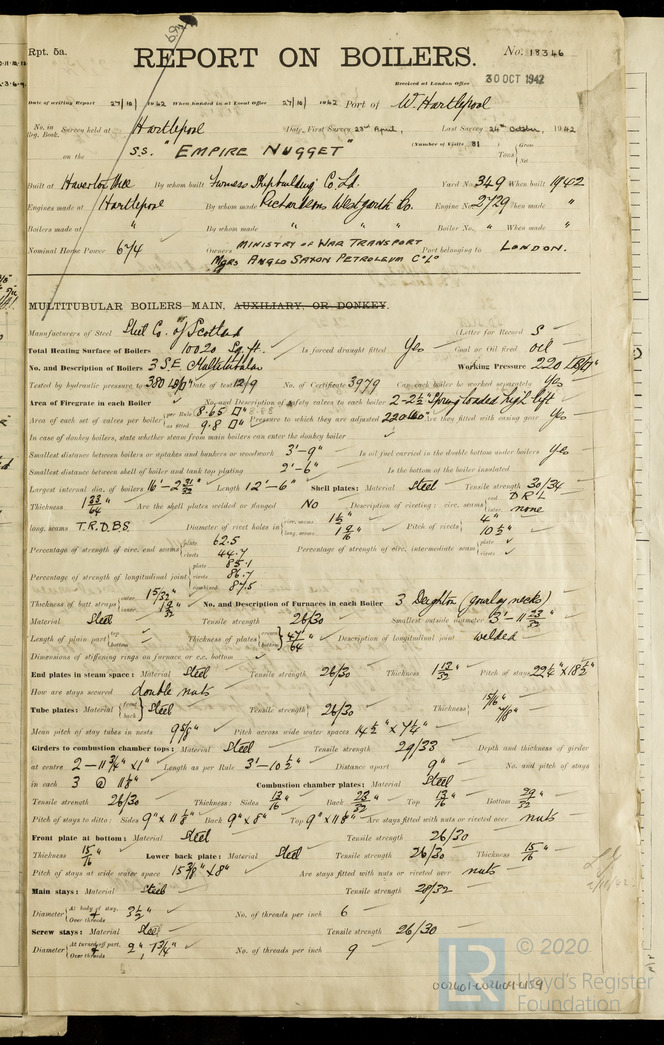 Rpt. 5a.
REPORT ON BOILERS.
No. 18346
Received at London Office
30 OCT 1942
Date of writing Report 27/10/1942 When handed in at Local Office 27/10/1942 Port of W. Hartlepool
No. in Reg. Book. Survey held at Hartlepool Date, First Survey 23rd April, Last Survey 24th October, 1942
on the S.S. "EMPIRE NUGGET" (Number of Visits 31) Tons { Gross Net
Built at Haverton Hill By whom built Furness Shipbuilding Co. Ld. Yard No. 349 When built 1942
Engines made at Hartlepool By whom made Richardsons Westgarth Co. Engine No. 2729 When made "
Boilers made at " By whom made " " " Boiler No. " When made "
Nominal Horse Power 674 Owners MINISTRY OF WAR TRANSPORT Port belonging to LONDON.
Mgrs ANGLO SAXON PETROLEUM Co Ld
MULTITUBULAR BOILERS—MAIN, AUXILIARY, OR DONKEY.
Manufacturers of Steel Steel Co. of Scotland (Letter for Record S
Total Heating Surface of Boilers 10020 Sq. ft. Is forced draught fitted Yes Coal or Oil fired oil
No. and Description of Boilers 3 S.E. Multitubular Working Pressure 220 LB/□"
Tested by hydraulic pressure to 380 LB/□" Date of test 12/9 No. of Certificate 3979 Can each boiler be worked separately Yes
Area of Firegrate in each Boiler No. and Description of safety valves to each boiler 2-2½" Spring loaded high lift
Area of each set of valves per boiler { per Rule 8.65 □" as fitted 9.8 □" Pressure to which they are adjusted 220 Are they fitted with easing gear Yes
In case of donkey boilers, state whether steam from main boilers can enter the donkey boiler
Smallest distance between boilers or uptakes and bunkers or woodwork 3'-9" Is oil fuel carried in the double bottom under boilers Yes
Smallest distance between shell of boiler and tank top plating 2'-6" Is the bottom of the boiler insulated
Largest internal dia. of boilers 16'-2 31/32" Length 12'-6" Shell plates: Material Steel Tensile strength 30/34
Thickness 1 23/64 Are the shell plates welded or flanged No Description of riveting: circ. seams { end D.R.L. inter. none
long. seams T.R.D.B.S. Diameter of rivet holes in { circ. seams 1½" long. seams 1 9/16" Pitch of rivets { 4" 10½"
Percentage of strength of circ. end seams { plate 62.5 rivets 44.7 Percentage of strength of circ. intermediate seam { plate rivets
Percentage of strength of longitudinal joint { plate 85.1 rivets 86.7 combined 87.5
Thickness of butt straps { outer 15/32" inner No. and Description of Furnaces in each Boiler 3 Deighton (gourlay necks)
Material Steel Tensile strength 26/30 Smallest outside diameter 3'-11 23/32"
Length of plain part { top bottom Thickness of plates { crown bottom 47/64" Description of longitudinal joint welded
Dimensions of stiffening rings on furnace or c.c. bottom
End plates in steam space: Material Steel Tensile strength 26/30 Thickness Pitch of stays 22¼" x 18½"
How are stays secured double nuts
Tube plates: Material { front back Steel Tensile strength { 26/30 Thickness { 15/16" 7/8"
Mean pitch of stay tubes in nests 9 5/8" Pitch across wide water spaces 14½" x 7¼"
Girders to combustion chamber tops: Material Steel Tensile strength 29/33 Depth and thickness of girder
at centre 2-11¾" x 1" Length as per Rule 3'-10½" Distance apart 9" No. and pitch of stays
in each 3 @ 11⅛" Combustion chamber plates: Material Steel
Tensile strength 26/30 Thickness: Sides 13/16" Back 23/32" Top 13/16" Bottom 29/32"
Pitch of stays to ditto: Sides 9" x 11⅛" Back 9" x 8" Top 9" x 11⅛" Are stays fitted with nuts or riveted over nuts
Front plate at bottom: Material Steel Tensile strength 26/30
Thickness 15/16" Lower back plate: Material Steel Tensile strength 26/30 Thickness 15/16"
Pitch of stays at wide water space 15⅜" x 8" Are stays fitted with nuts or riveted over nuts
Main stays: Material Steel Tensile strength 28/32
Diameter { At body of stay, or Over threads 3½" No. of threads per inch 6
Screw stays: Material Steel Tensile strength 26/30
Diameter { At turned off part, or Over threads 2", 1¾" No. of threads per inch 9
002401-002409-0159
LR © 2020
Lloyd's Register
Foundation